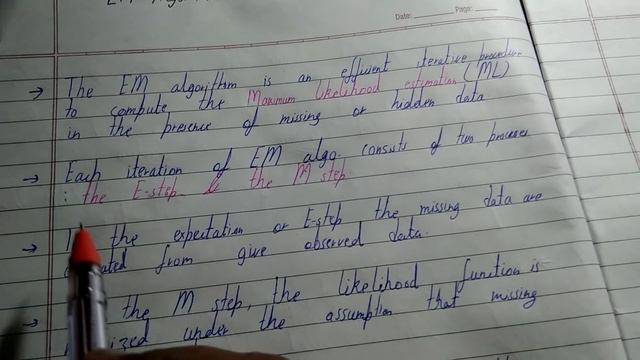 Date: Page:
→ The EM algorithm is an efficient iterative procedure
to compute the Maximum likelihood estimation (ML)
in the presence of missing or hidden data
→ Each iteration of EM algo. consists of two processes
: the E-step & the M step.
→ the expectation or E-step the missing data are
from give observed data.
→ the M step, the likelihood function is
under the assumption that missing